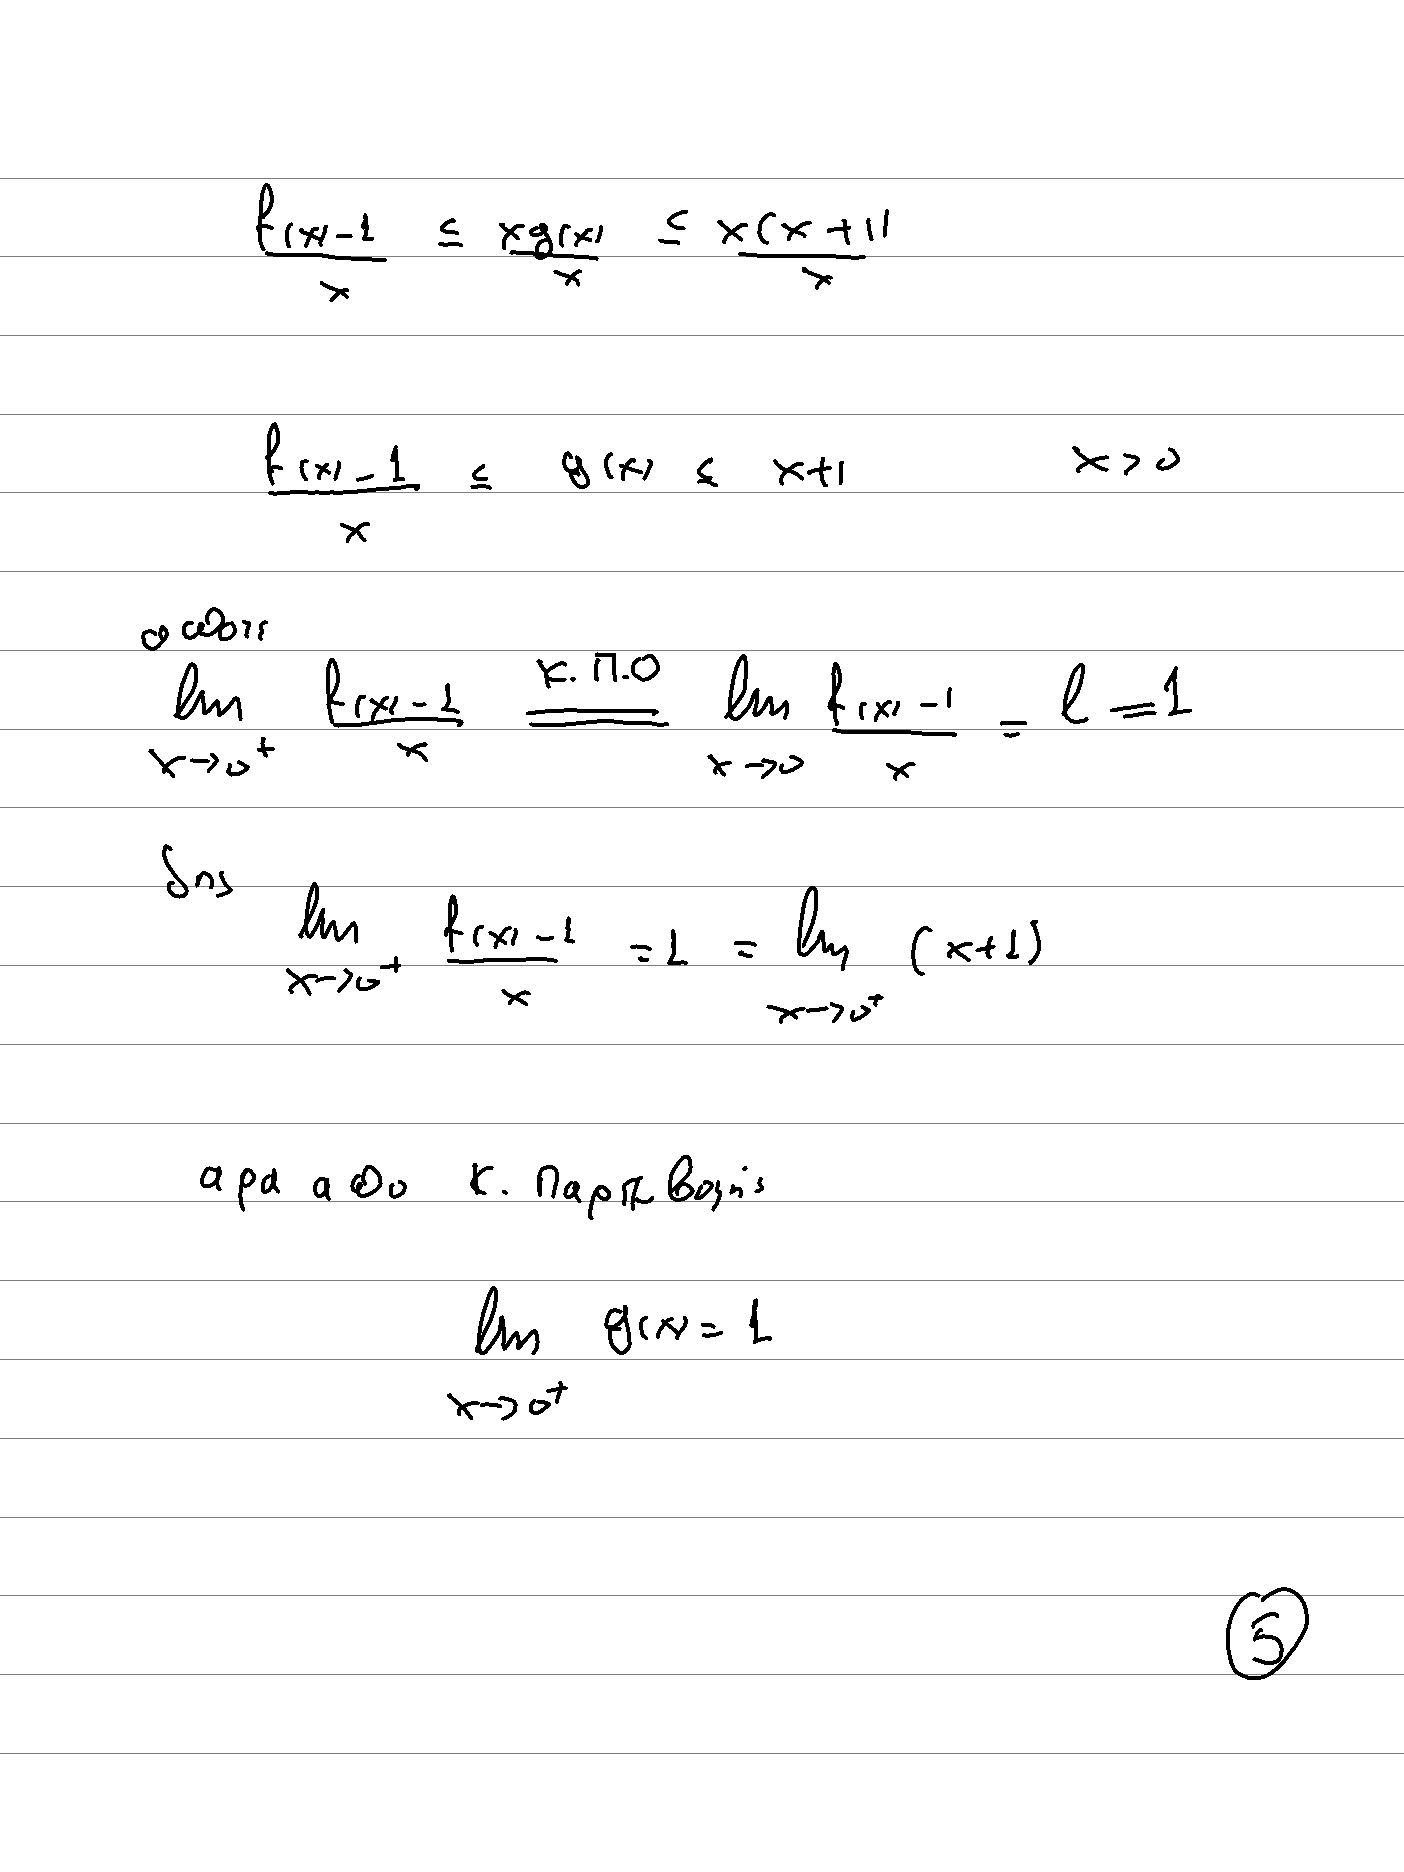 (f(x)-1)/x ≤ xg(x)/x ≤ x(x+1)/x
(f(x)-1)/x ≤ g(x) ≤ x+1 x>0
οποτε
lim x→0⁺ (f(x)-1)/x = Κ.Π.Ο lim x→0 (f(x)-1)/x = l = 1
δης
lim x→0⁺ (f(x)-1)/x = 1 = lim x→0⁺ (x+1)
αρα απο Κ. Παρεμβολής
lim x→0⁺ g(x) = 1
5